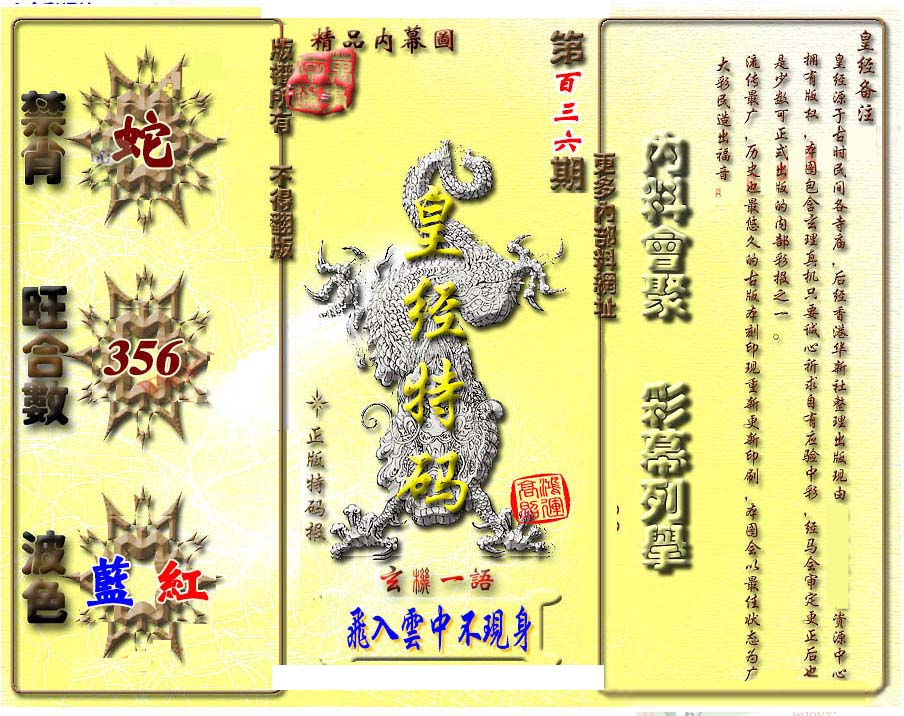 精品内幕圖
第百三六期
版權所有 不得翻版
更多內部料網址
禁肖
蛇
旺合數
356
波色
藍 紅
皇经特码
正版特码报
鴻運高照
玄機一語
飛入雲中不現身
内料會聚
彩幕列舉
皇经备注
皇经源于古时民间各寺庙,后经香港华新社整理出版现由 资源中心
拥有版权,本图包含玄理真机只要诚心祈求自有应验中彩,经马会审定更正后也
是少数可正式出版的内部彩报之一。
流传最广,历史也最悠久的古版本刻印现重新更新印刷,本图会以最佳状态为广
大彩民造出福音